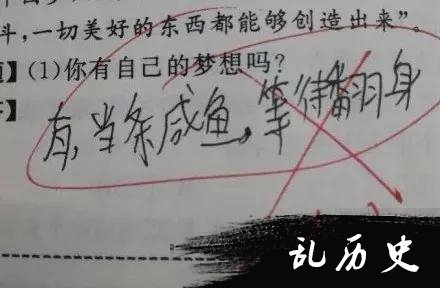 斗，一切美好的东西都能够创造出来”。
】(1)你有自己的梦想吗?
】有，当条咸鱼，等待翻身
乱历史